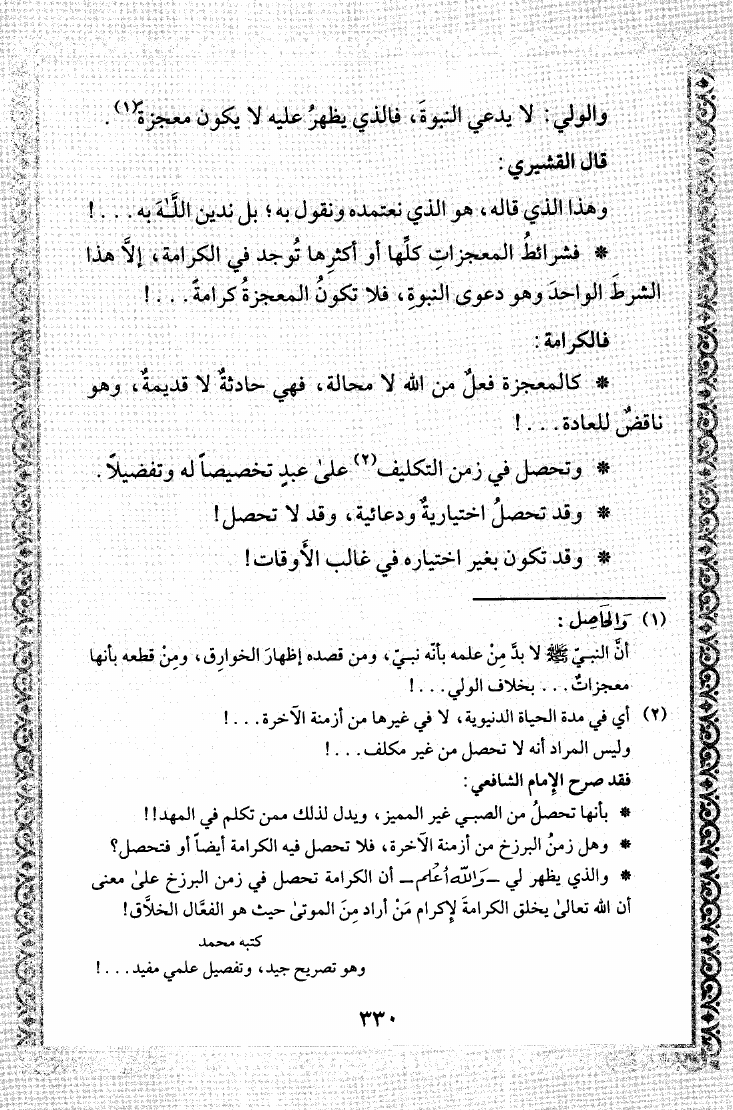 والولي: لا يدعي النبوةَ، فالذي يظهرُ عليه لا يكون معجزةً(١).
قال القشيري:
وهذا الذي قاله، هو الذي نعتمده ونقول به؛ بل ندين اللَّـهَ به...!
* فشرائطُ المعجزاتِ كلِّها أو أكثرِها تُوجد في الكرامة، إلاَّ هذا
الشرطَ الواحدَ وهو دعوى النبوةِ، فلا تكونُ المعجزةُ كرامةً...!
فالكرامة:
* كالمعجزة فعلٌ من الله لا محالة، فهي حادثةٌ لا قديمةٌ، وهو
ناقضٌ للعادة...!
* وتحصل في زمن التكليف(٢) علىٰ عبدٍ تخصيصاً له وتفضيلاً.
* وقد تحصلُ اختياريةٌ ودعائية، وقد لا تحصل!
* وقد تكون بغير اختياره في غالب الأَوقات!
(١) وَالحَاصِل:
أنَّ النبـيّ ﷺ لا بدَّ مِنْ علمه بأنّه نبـيّ، ومن قصده إظهارَ الخوارِق، ومِنْ قطعه بأنها
معجزاتٌ... بخلاف الولي...!
(٢) أي في مدة الحياة الدنيوية، لا في غيرها من أزمنة الآخرة...!
وليس المراد أنه لا تحصل من غير مكلف...!
فقد صرح الإمام الشافعي:
* بأنها تحصلُ من الصبـي غير المميز، ويدل لذلك ممن تكلم في المهد!!
* وهل زمنُ البرزخ من أزمنة الآخرة، فلا تحصل فيه الكرامة أيضاً أو فتحصل؟
* والذي يظهر لي ــ وَاللّٰه أعْلَم ــ أن الكرامة تحصل في زمن البرزخ علىٰ معنى
أن الله تعالىٰ يخلق الكرامةَ لإكرام مَنْ أراد مِنَ الموتىٰ حيث هو الفعَّال الخلاَّق!
كتبه محمد
وهو تصريح جيد، وتفصيل علمي مفيد...!
٣٣٠